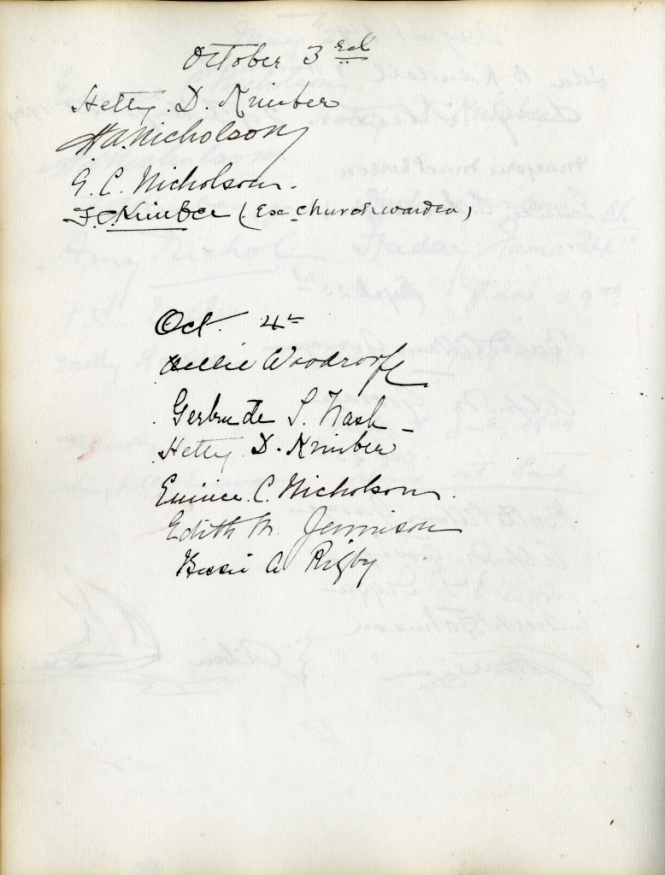 October 3rd
Hetty. D. Kimber
H A. Nicholson
E. C. Nicholson.
F. C. Kimber (Ex Churchwarden)
Oct. 4th
Nellie Woodroofe
Gertrude S. Nash
Hetty D. Kimber
Eunice. C. Nicholson.
Edith M. Jennison
Bessie A Rigby